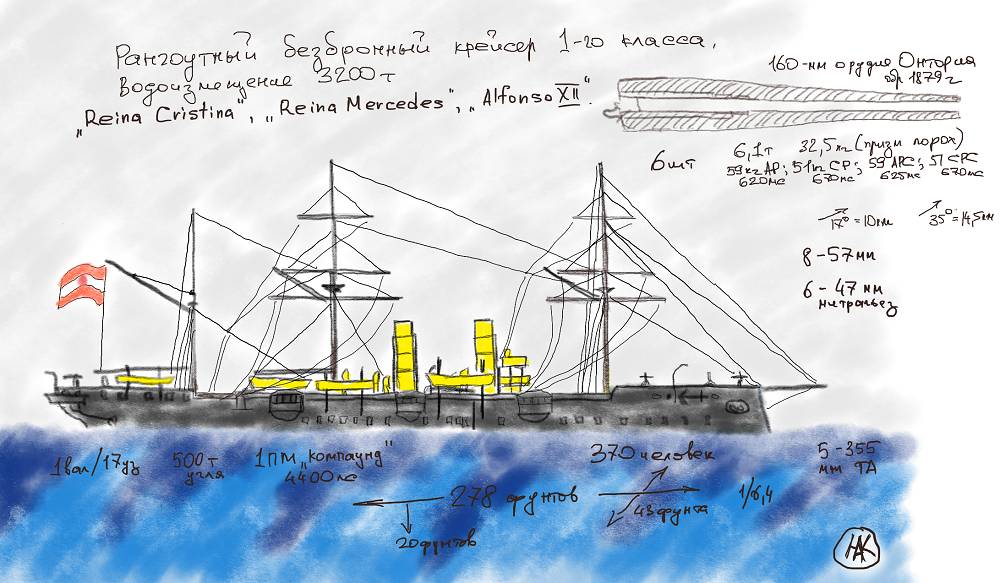 Рангоутный безбронный крейсер 1-го класса,
Водоизмещение 3200т
„Reina Cristina", „Reina Mercedes", „Alfonso XII".
160-мм орудие Онтория
обр 1879 г
6 шт
6,1т 32,5кг (призм порох)
59кг AP; 51кг CP; 59 APC; 51 CPC
620мс 670мс 625мс 670мс
17° = 10км 35° = 14,5км
8-57мм
6-47 мм
митральез
1 вал/17уз
500т
угля
1ПМ „компаунд"
4400лс
370 человек
5-355
мм ТА
278 футов
1/6,4
43 фунта
20 фунтов
НАК